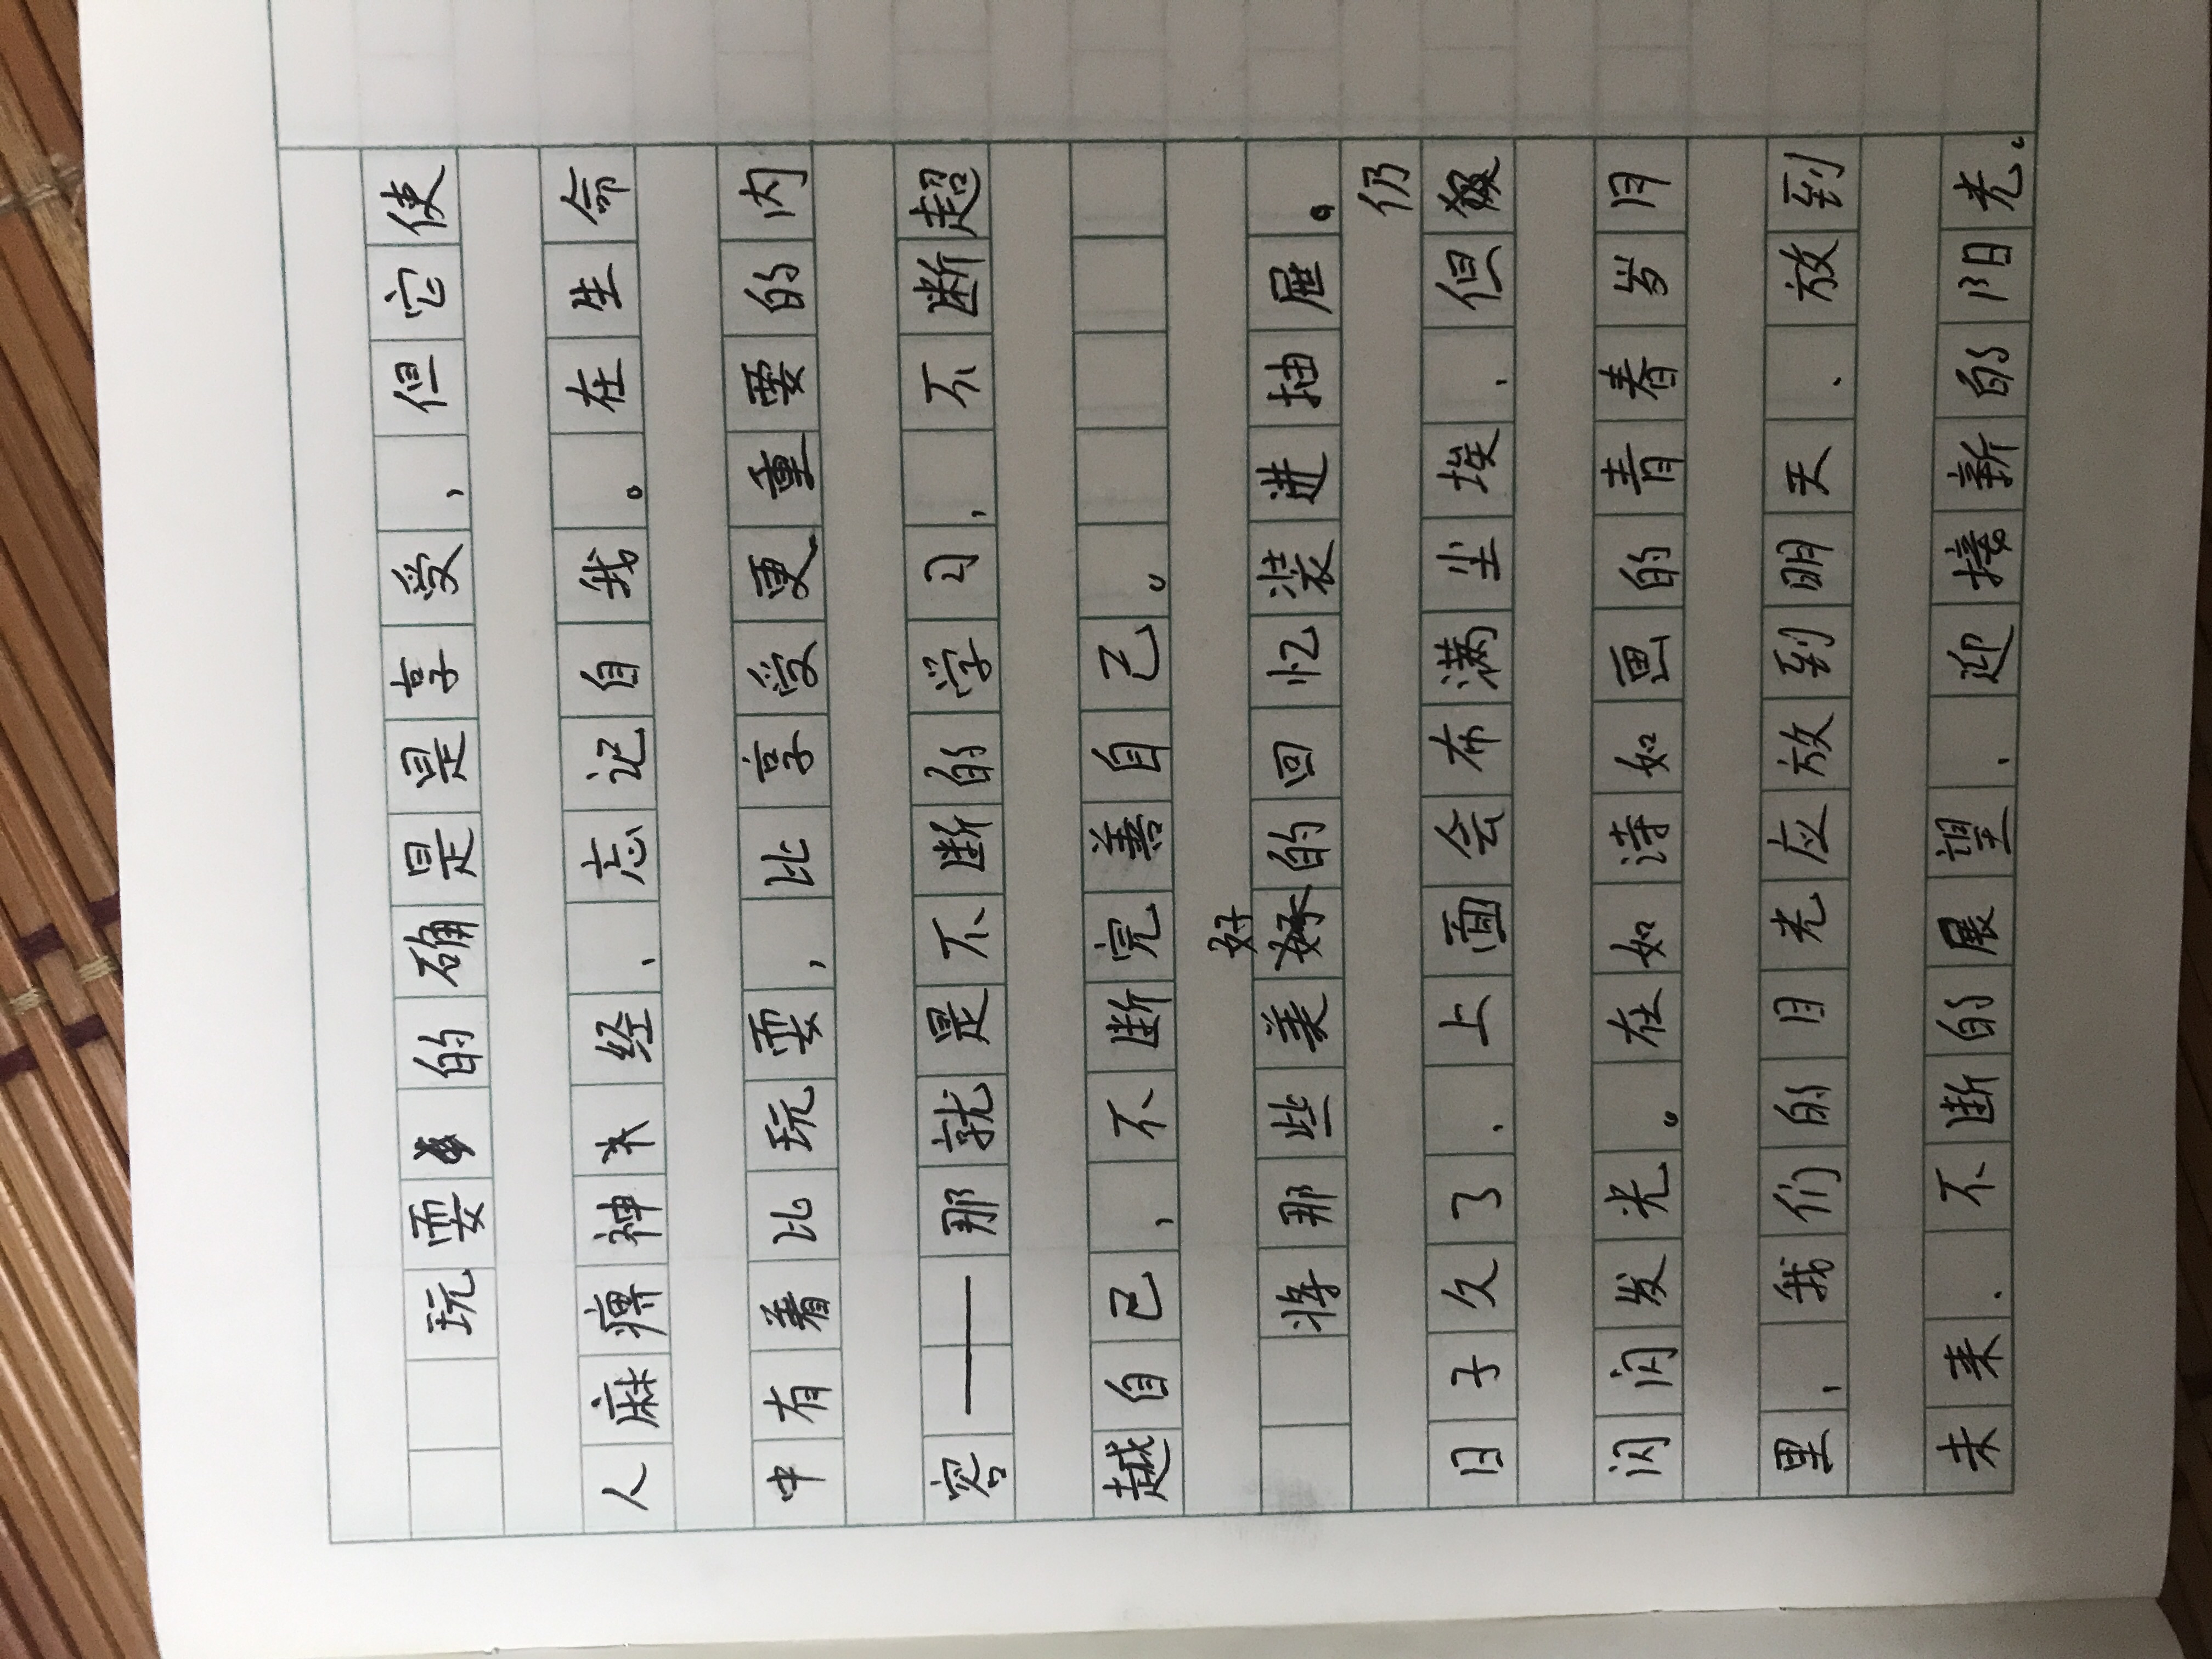 玩耍的确是是享受，但它使
人麻痹神经、忘记自我。在生命
中有着比玩耍，比享受更重要的内
容——那就是不断的学习，不断超
越自己，不断完善自己。
将那些美好的回忆装进抽屉。
日子久了、上面会布满尘埃、但仍
闪闪发光。在如诗如画的青春岁月
里、我们的目光应放到明天、放到
未来、不断的展望、迎接新的阳光。